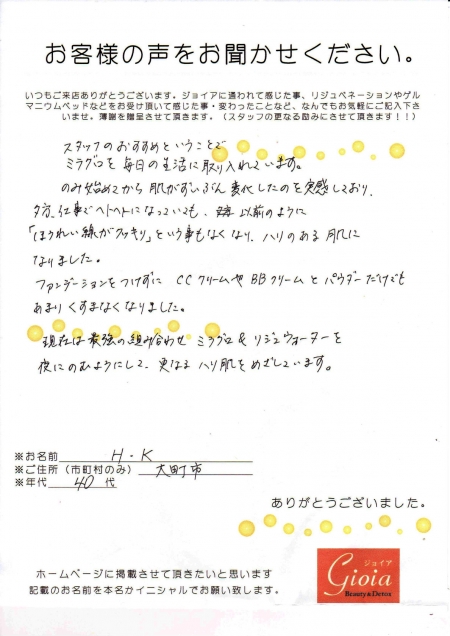 お客様の声をお聞かせください。
いつもご来店ありがとうございます。ジョイアに通われて感じた事、リジュベネーションやゲル
マニウムベッドなどをお受け頂いて感じた事・変わったことなど、なんでもお気軽にご記入下さ
いませ。薄謝を贈呈させて頂きます。（スタッフの更なる励みにさせて頂きます！！）
スタッフのおすすめということで
ミラグロを毎日の生活に取り入れています。
のみ始めてから肌がずいぶん変化したのを実感しており、
夕方、仕事でヘトヘトになっていても、以前のように
「ほうれい線がクッキリ」という事もなくなり、ハリのある肌に
なりました。
ファンデーションをつけずに CCクリームや BBクリームとパウダーだけでも
あまりくすまなくなりました。
現在は最強の組み合わせ ミラグロ & リジュウォーターを
夜にのむようにして、更なるハリ肌をめざしています。
※お名前 H・K
※ご住所（市町村のみ） 大町市
※年代 40 代
ありがとうございました。
ホームページに掲載させて頂きたいと思います
記載のお名前を本名かイニシャルでお願い致します。
ジョイア
Gioia
Beauty&Detox